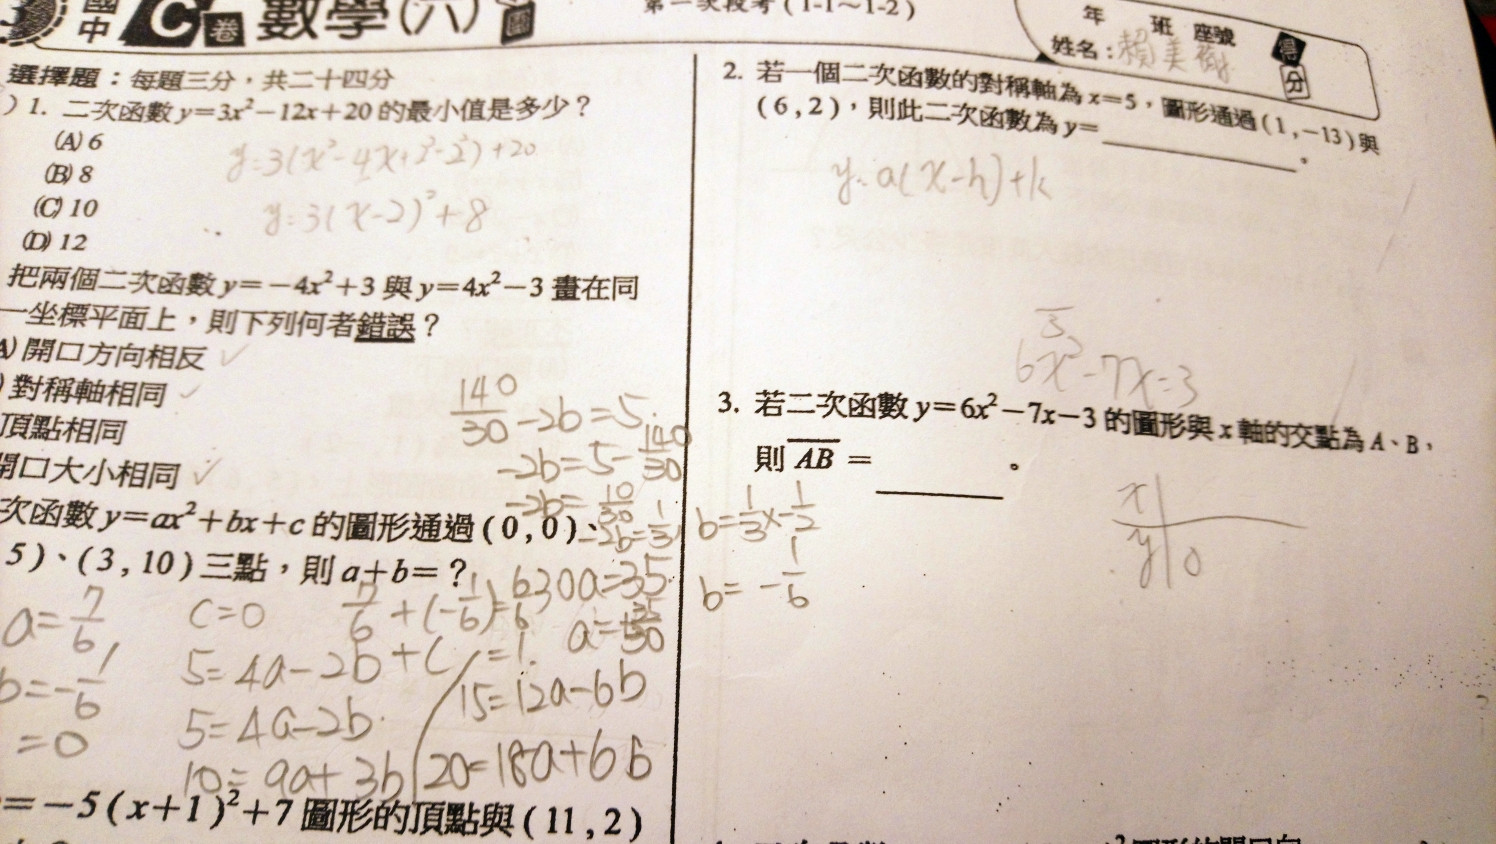 國中 C卷 數學(六)
第一次段考(1-1～1-2)
年 班 座號
姓名：賴美
得分
選擇題：每題三分，共二十四分
)1. 二次函數 y=3x²-12x+20 的最小值是多少？
(A) 6
(B) 8
(C) 10
(D) 12
y=3(x²-4x+2²-2²)+20
y=3(x-2)²+8
把兩個二次函數 y=-4x²+3 與 y=4x²-3 畫在同
一坐標平面上，則下列何者錯誤？
A) 開口方向相反 ✓
) 對稱軸相同 ✓
頂點相同
開口大小相同 ✓
次函數 y=ax²+bx+c 的圖形通過(0,0)、
5)、(3,10)三點，則 a+b=？
140/30-2b=5
-2b=5-140/30
-2b=10/30
-2b=1/3
b=1/3×-1/2
b=-1/6
30a=35
a=35/30
a=7/6
b=-1/6
=0
c=0
7/6+(-1/6)=6/6
=1
5=4a-2b+c
5=4a-2b
10=9a+3b
15=12a-6b
20=18a+6b
=-5(x+1)²+7 圖形的頂點與(11,2)
2. 若一個二次函數的對稱軸為 x=5，圖形通過(1,-13)與
(6,2)，則此二次函數為 y=________。
y=a(x-h)+k
3
6x²-7x=3
3. 若二次函數 y=6x²-7x-3 的圖形與 x 軸的交點為 A、B，
則 AB =________。
x
y 0
²圖形的開口向